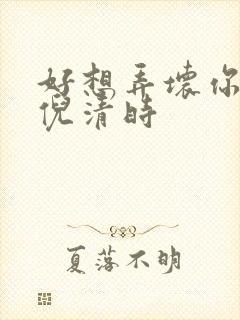 好想弄壞你
倪清時
夏落不明